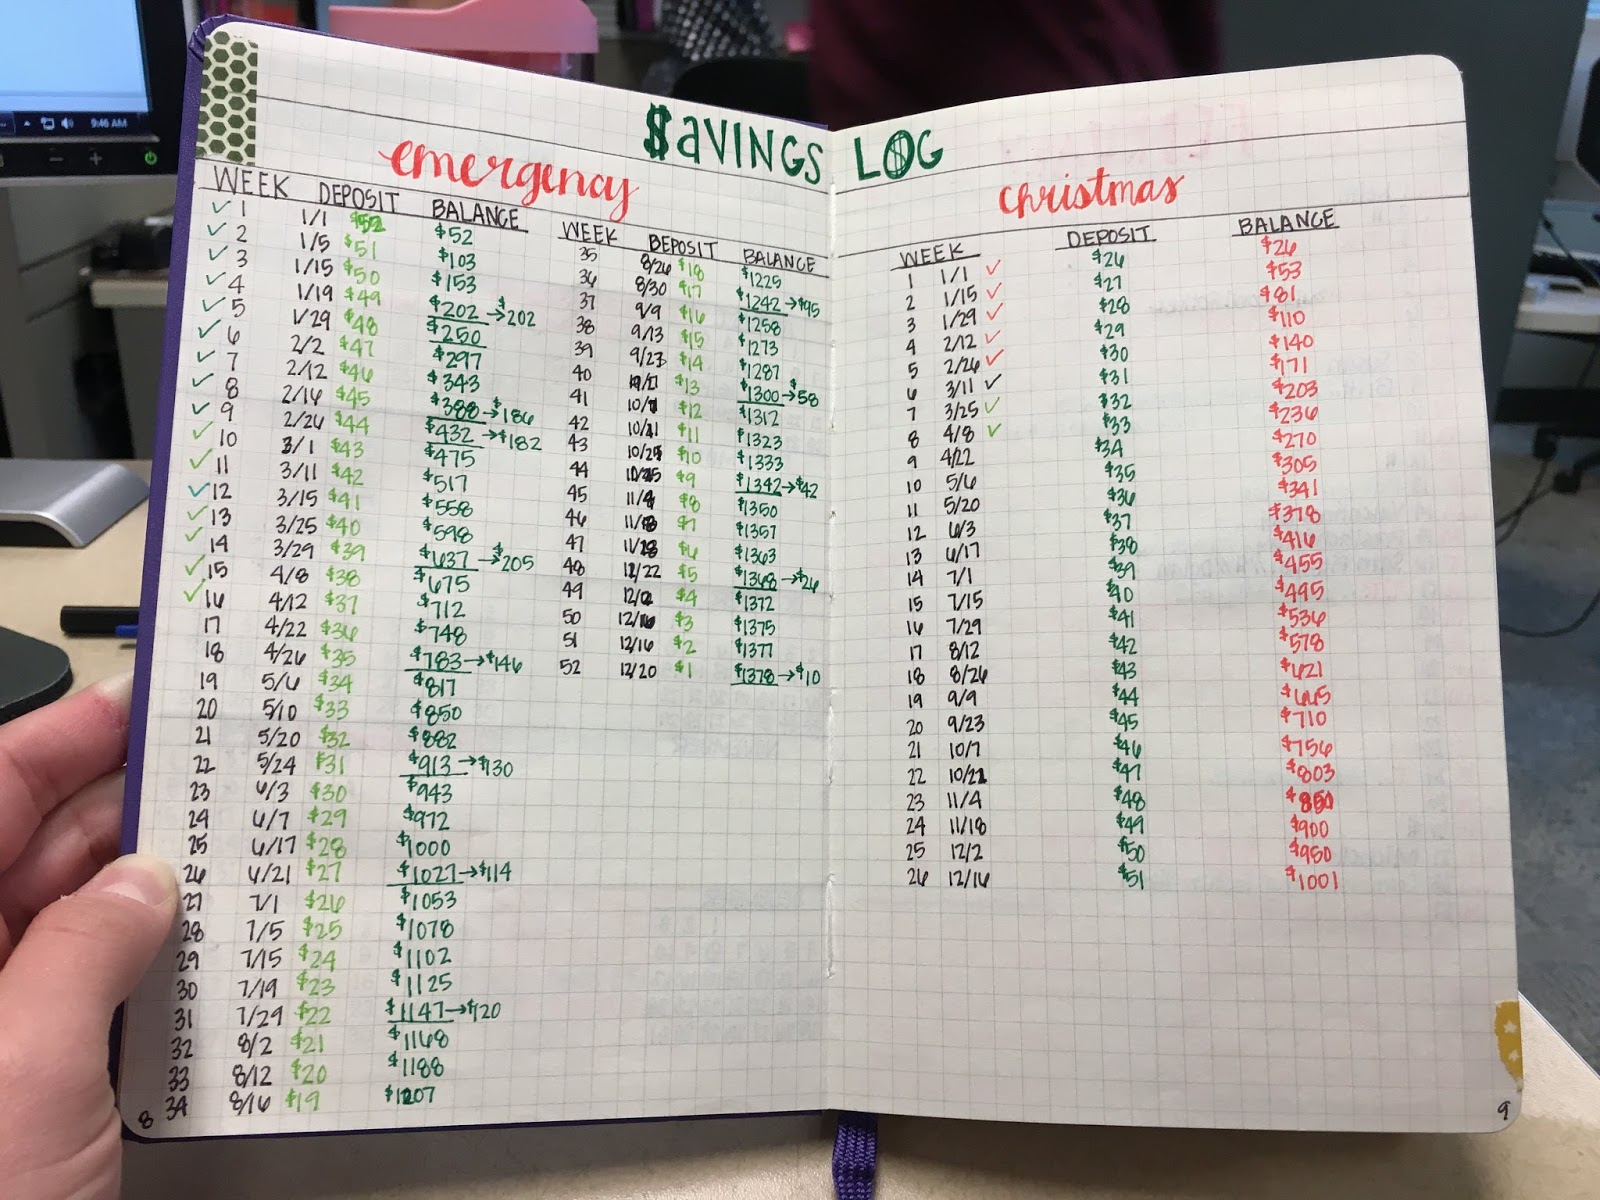 9:46 AM
$AVINGS LOG
emergency
WEEK DEPOSIT BALANCE
✓ 1 1/1 $52 $52
✓ 2 1/5 $51 $103
✓ 3 1/15 $50 $153
✓ 4 1/19 $49 $202 → $202
✓ 5 1/29 $48 $250
✓ 6 2/2 $47 $297
✓ 7 2/12 $46 $343
✓ 8 2/16 $45 $388 → $186
✓ 9 2/26 $44 $432 → $182
✓ 10 3/1 $43 $475
✓ 11 3/11 $42 $517
✓ 12 3/15 $41 $558
✓ 13 3/25 $40 $598
✓ 14 3/29 $39 $637 → $205
✓ 15 4/8 $38 $675
✓ 16 4/12 $37 $712
17 4/22 $36 $748
18 4/26 $35 $783 → $146
19 5/6 $34 $817
20 5/10 $33 $850
21 5/20 $32 $882
22 5/24 $31 $913 → $130
23 6/3 $30 $943
24 6/7 $29 $972
25 6/17 $28 $1000
26 6/21 $27 $1027 → $114
27 7/1 $26 $1053
28 7/5 $25 $1078
29 7/15 $24 $1102
30 7/19 $23 $1125
31 7/29 $22 $1147 → $120
32 8/2 $21 $1168
33 8/12 $20 $1188
34 8/16 $19 $1207
8
WEEK DEPOSIT BALANCE
35 8/26 $18 $1225
36 8/30 $17 $1242 → $95
37 9/9 $16 $1258
38 9/13 $15 $1273
39 9/23 $14 $1287
40 $13 $1300 → $58
41 $12 $1312
42 $11 $1323
43 $10 $1333
44 $9 $1342 → $42
45 $8 $1350
46 $7 $1357
47 $6 $1363
48 $5 $1368 → $26
49 $4 $1372
50 $3 $1375
51 12/16 $2 $1377
52 12/20 $1 $1378 → $10
christmas
WEEK DEPOSIT BALANCE
1 1/1 ✓ $26 $26
2 1/15 ✓ $27 $53
3 1/29 ✓ $28 $81
4 2/12 ✓ $29 $110
5 2/26 ✓ $30 $140
6 3/11 ✓ $31 $171
7 3/25 ✓ $32 $203
8 4/8 ✓ $33 $236
9 4/22 $34 $270
10 5/6 $35 $305
11 5/20 $36 $341
12 6/3 $37 $378
13 6/17 $38 $416
14 7/1 $39 $455
15 7/15 $40 $495
16 7/29 $41 $536
17 8/12 $42 $578
18 8/26 $43 $621
19 9/9 $44 $665
20 9/23 $45 $710
21 10/7 $46 $756
22 10/21 $47 $803
23 11/4 $48
24 11/18 $49 $900
25 12/2 $50 $950
26 12/16 $51 $1001
9